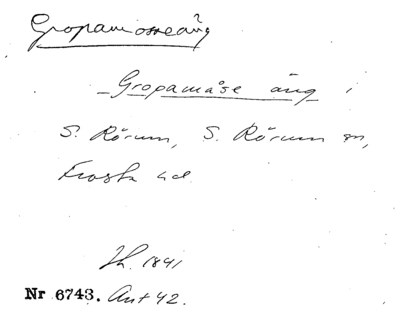 Gropamosseäng
Gropamåse äng i
S. Rörum, S. Rörum sn,
Frosta hd.
Th. 1841
Nr 6743. Ant 42.